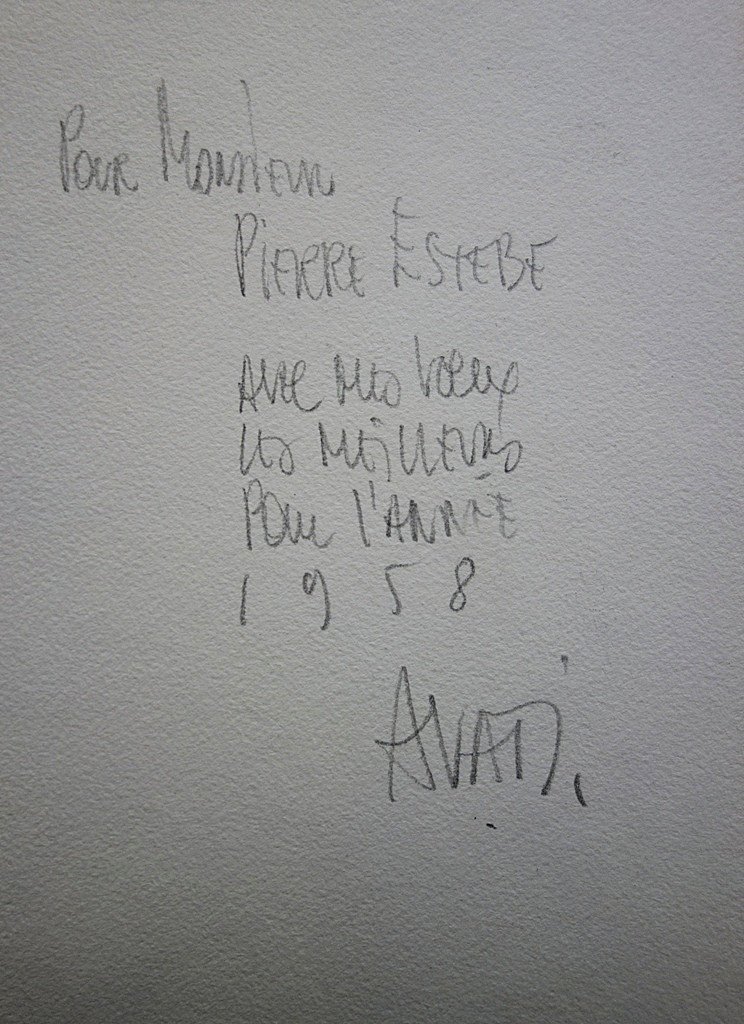 Pour Monsieur
PIERRE ESTEBE
AVEC mes voeux
les MEILLEURS
POUR l'ANNÉE
1958
AVATI.